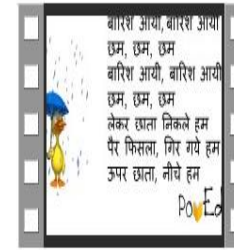 बारिश आयी, बारिश आयी
छम, छम, छम
बारिश आयी, बारिश आयी
छम, छम, छम
लेकर छाता निकले हम
पैर फिसला, गिर गये हम
ऊपर छाता, नीचे हम